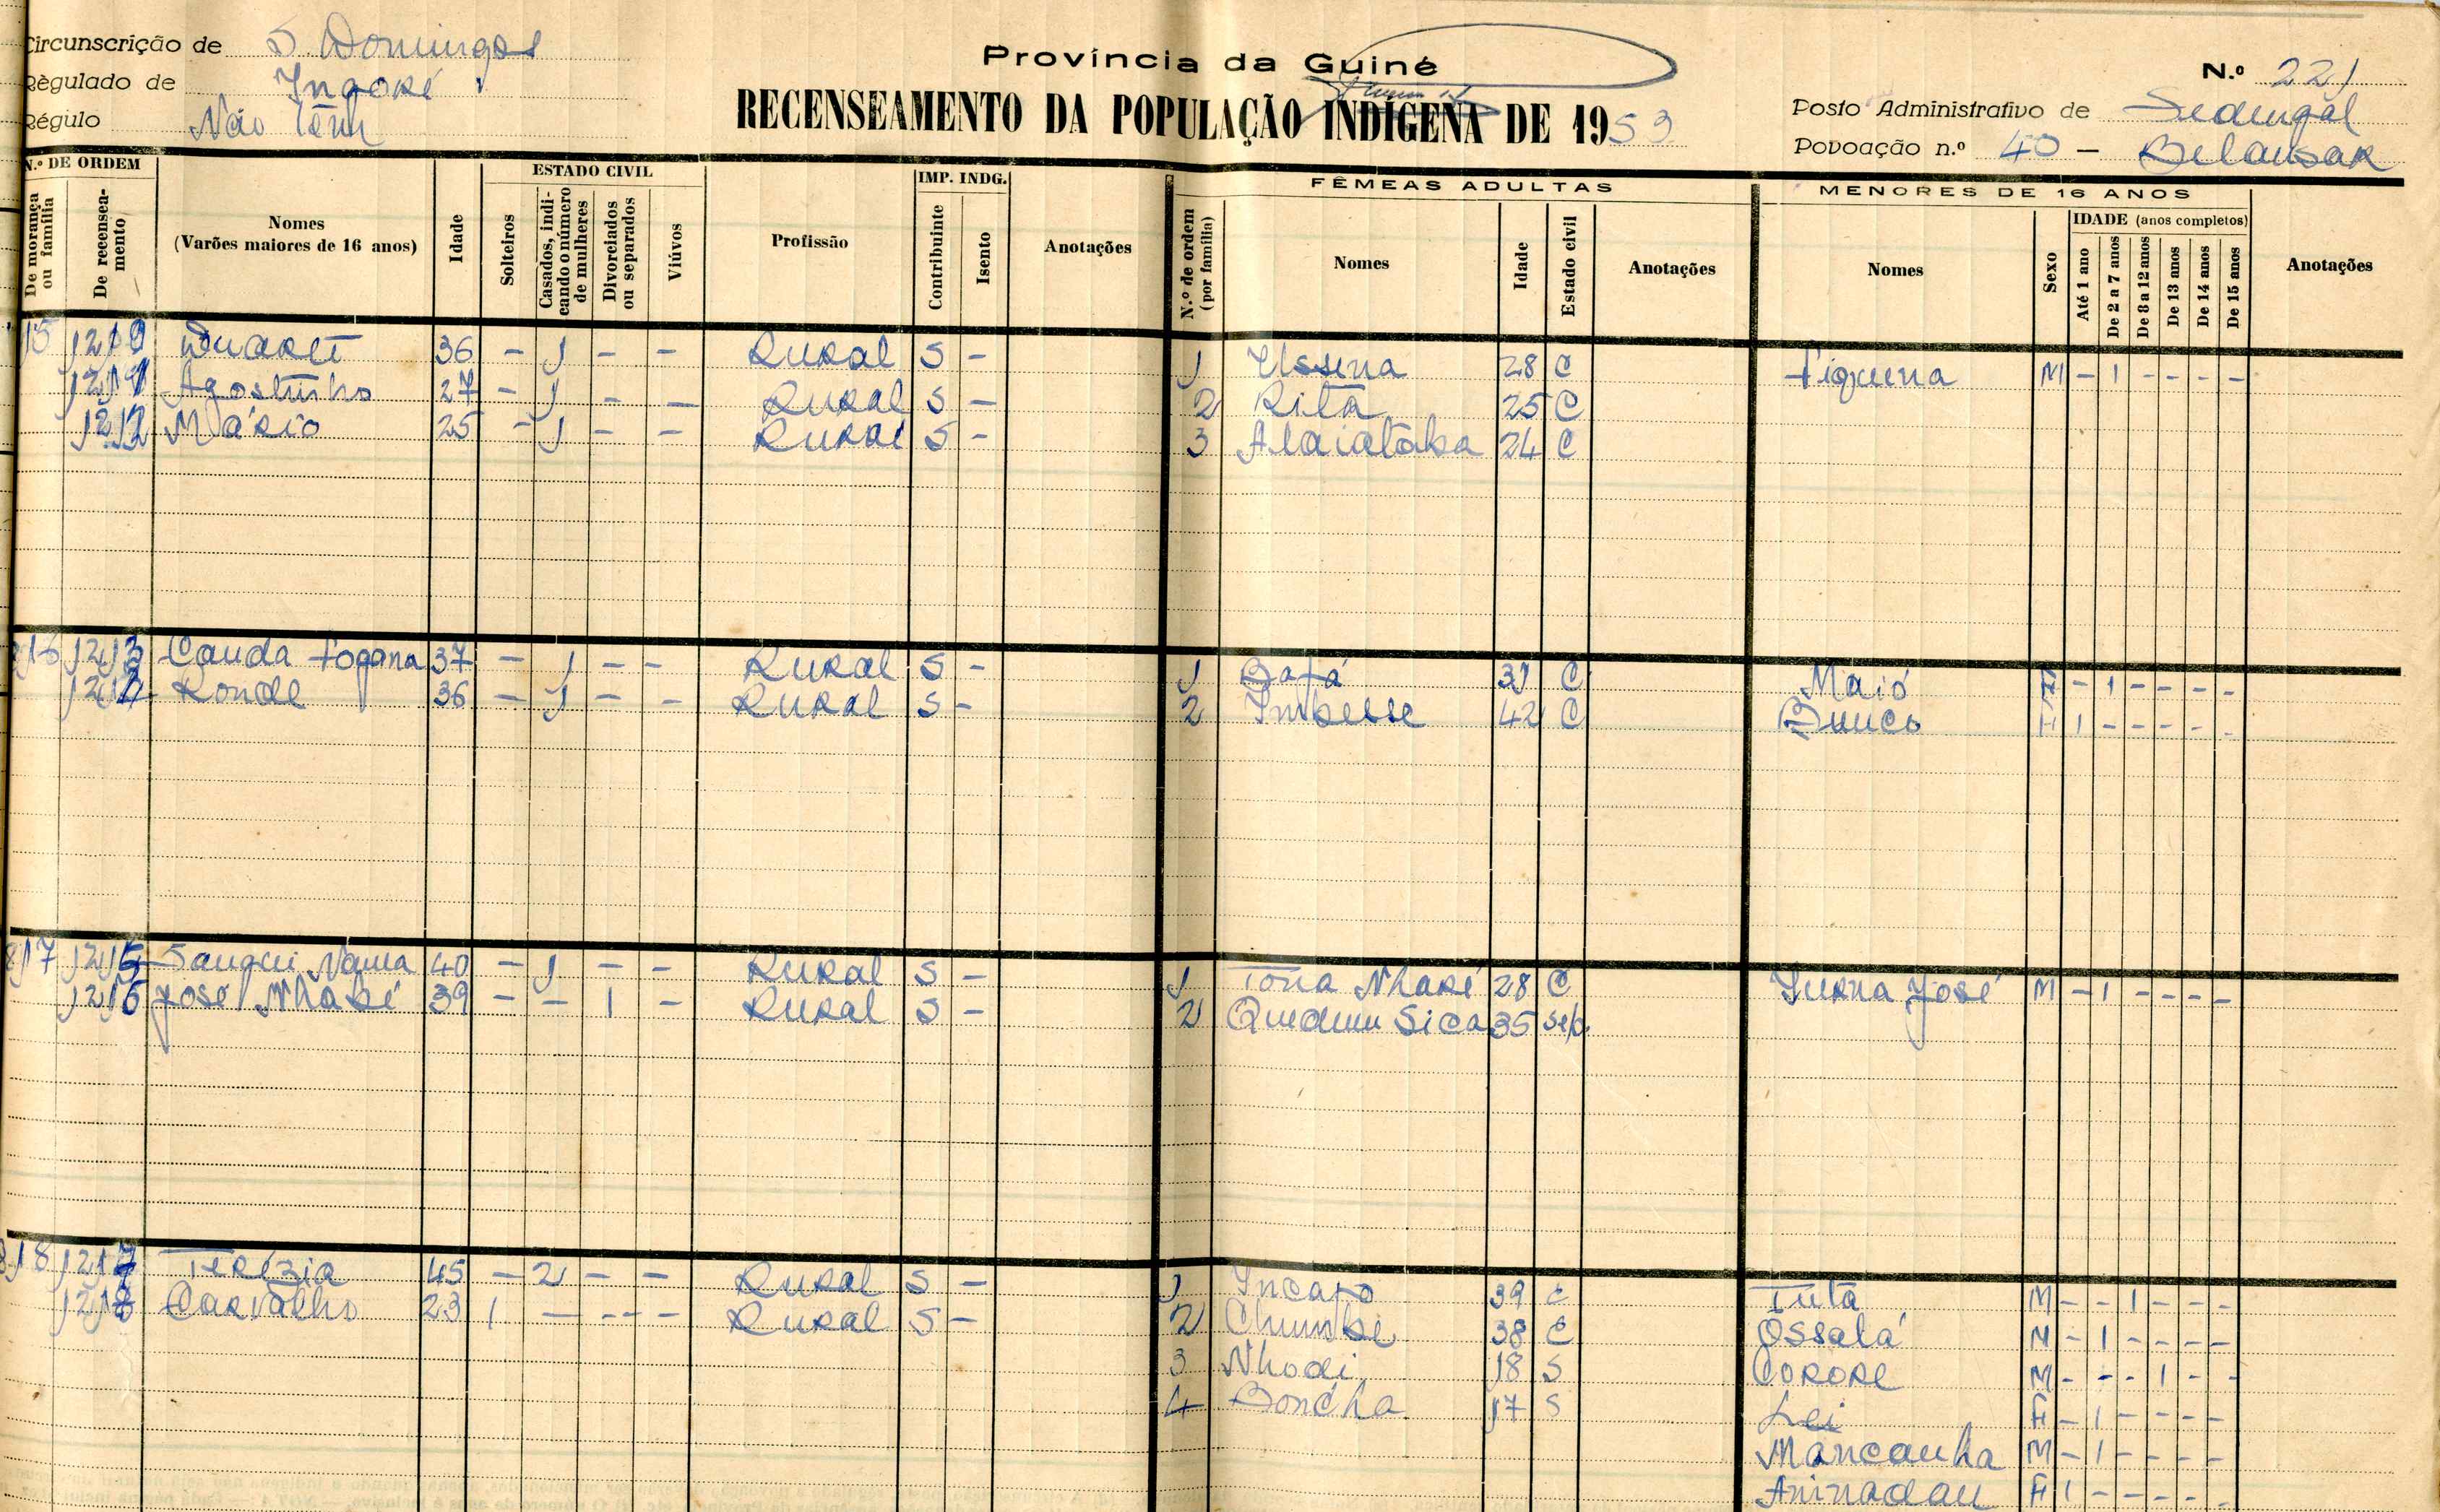 Circunscrição de S. Domingos
Règulado de Ingoré
Régulo Não Tem
Província da Guiné
RECENSEAMENTO DA POPULAÇÃO INDÍGENA DE 1953
N.º 221
Posto Administrativo de Sedengal
Povoação n.º 40 -
N.º DE ORDEM
De morança ou família
De recenseamento
Nomes (Varões maiores de 16 anos)
Idade
ESTADO CIVIL
Solteiros
Casados, indicando o número de mulheres
Divorciados ou separados
Viúvos
Profissão
IMP. INDG.
Contribuinte
Isento
Anotações
FÊMEAS ADULTAS
N.º de ordem (por família)
Nomes
Idade
Estado civil
Anotações
MENORES DE 16 ANOS
Nomes
Sexo
IDADE (anos completos)
Até 1 ano
De 2 a 7 anos
De 8 a 12 anos
De 13 anos
De 14 anos
De 15 anos
Anotações
15 Duarte 36 - 1 - - Rural S - 1 Ussena 28 C Fiquena M - 1 - - - -
1211 Agostinho 27 - 1 - - Rural S - 2 Rita 25 C
1212 Mário 25 - 1 - - Rural S - 3 24 C
16 1213 Cauda Fogana 37 - 1 - - Rural S - 1 Bafá C Maió - 1 - - - -
Ronde 36 - 1 - - Rural S - 2 Imbesse 42 C F 1 - - - - -
17 1215 Sanqui Nama 40 - 1 - - Rural S - 1 Tona Nharé 28 C Jurna José M - 1 - - - -
1216 José Nhabé 39 - - 1 - Rural S - 2 Sica 35 sep.
18 1217 Terézia 45 - 2 - - Rural S - 1 39 C Tuta M - - 1 - - -
1218 Carvalho 23 1 - - - Rural S - 2 Chumbe 38 C Ossalá M - 1 - - - -
3 Nhodi 18 S Corore M - - - 1 - -
4 Boncha 17 S Lei F - 1 - - - -
Mancanha M - 1 - - - -
Aninadau F 1 - - - - -